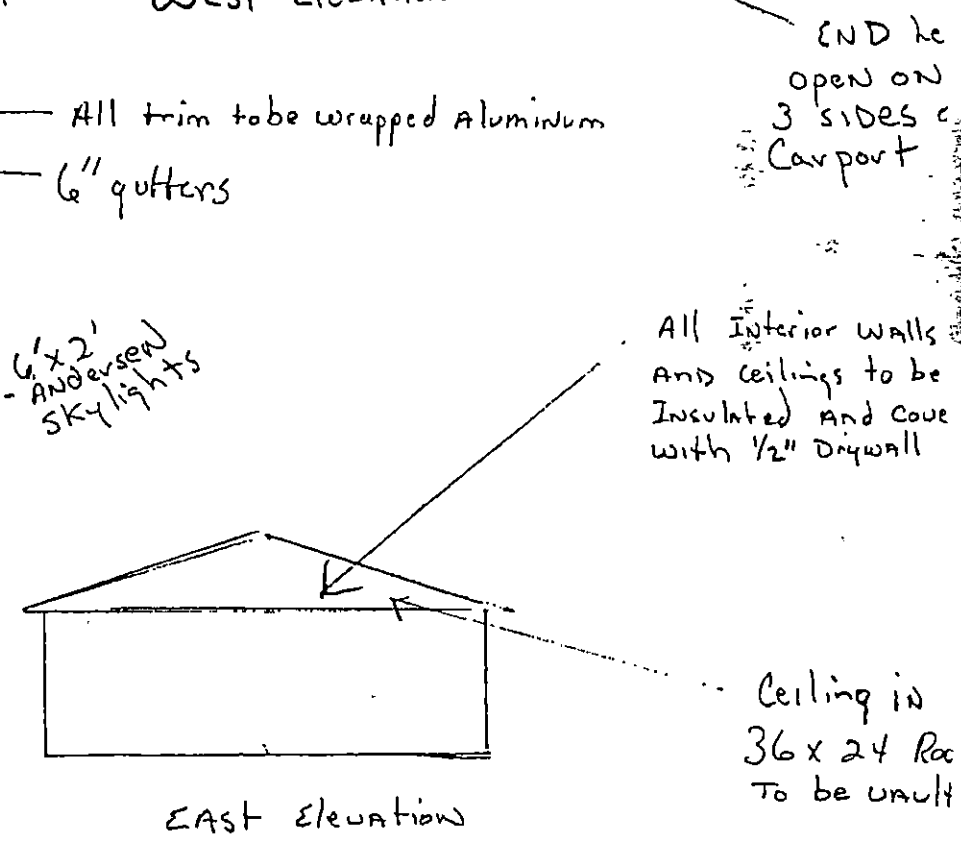 WEST Elevation
END he
open ON
3 SIDES
Carport
All trim to be wrapped Aluminum
6" gutters
6'x2'
- ANDERSEN
SKylights
All Interior WAlls
AND Ceilings to be
InsulAted And Cove
with 1/2" DrywAll
Ceiling iN
36 x 24 Roo
To be vAult
EASt ElevAtioN